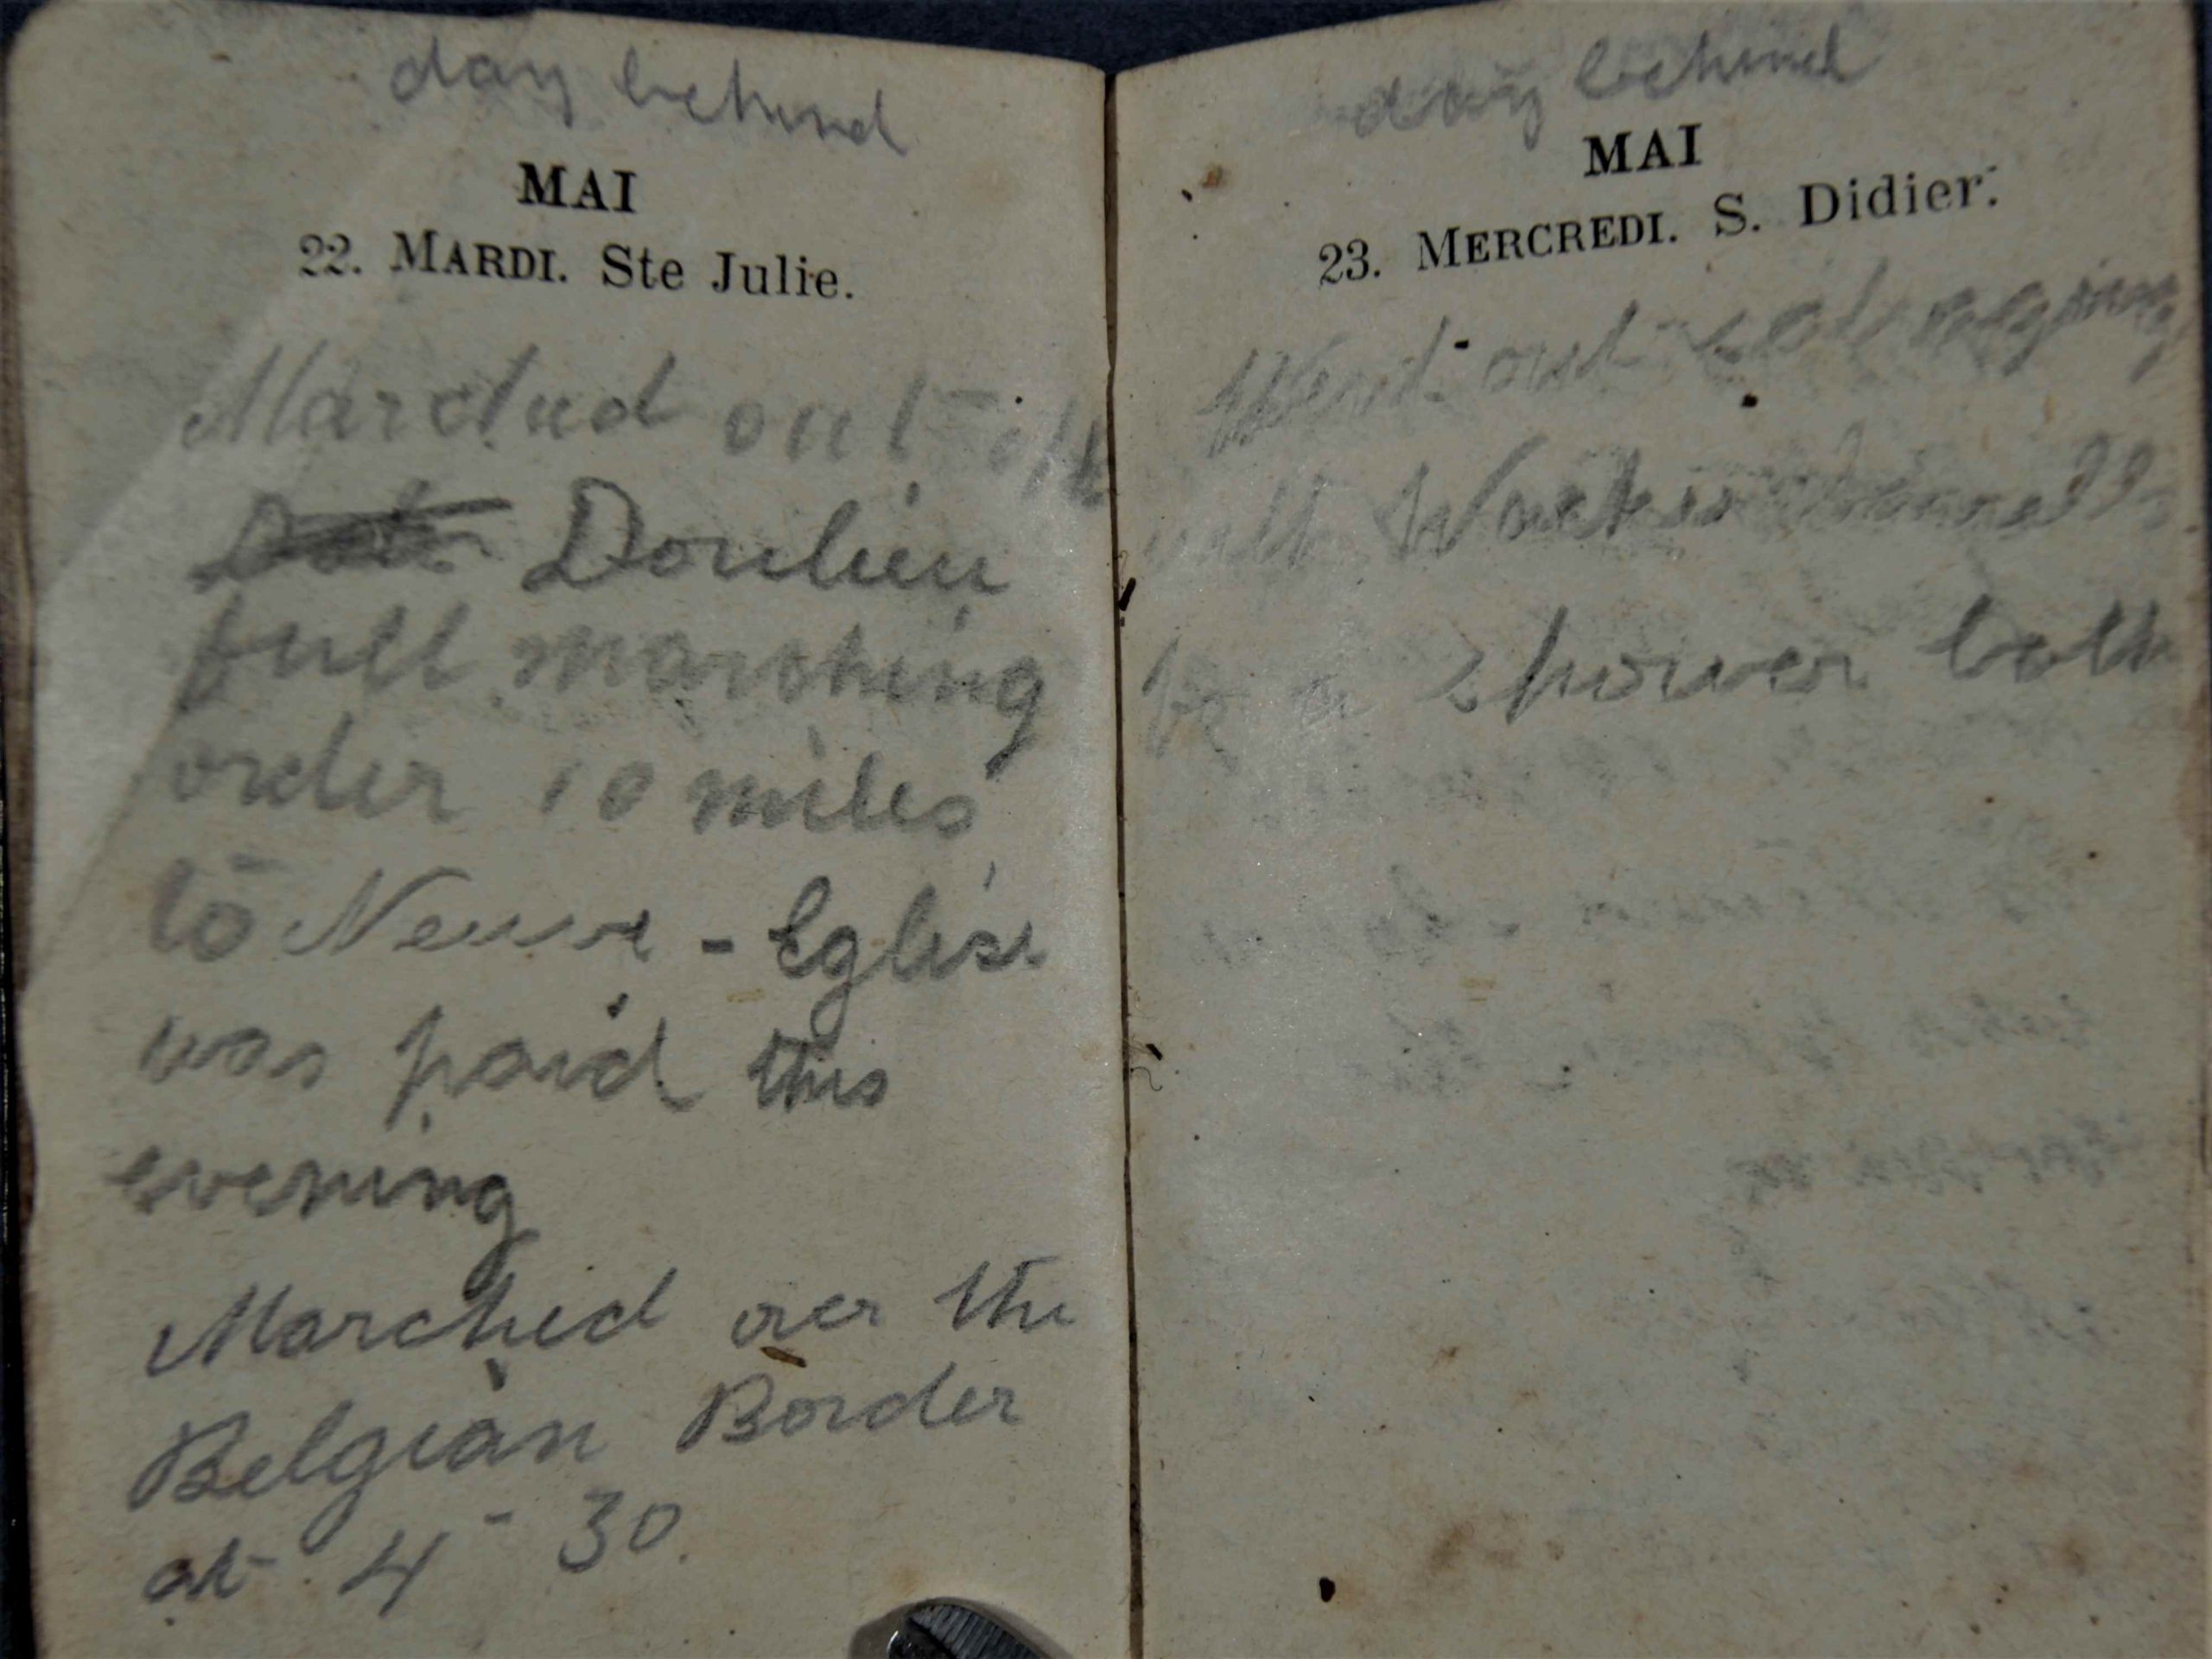 day behind
MAI
22. MARDI. Ste Julie.
Marched out of
Doulieu
full marching
order 10 miles
to Neuve - Eglise
was paid this
evening
Marched over the
Belgian Border
at 4 - 30.
day behind
MAI
23. MERCREDI. S. Didier.
Went out
with
a shower bath